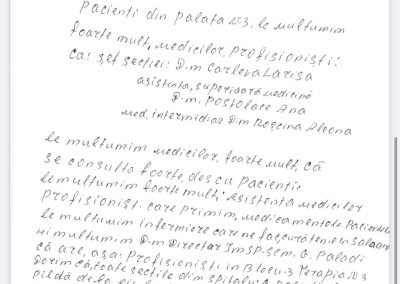 Pacienti din palata N3, le multumim
foarte mult, medicilor, profisioniști:
Ca: șef secției: D-m Carleva Larisa
asistenta, superioară medicină
D-m. Postolace Ana
med. intermidiar D-m Roșcina Aleona
le multumim medicilor, foarte mult, că
se consulta foorte, des cu pacienti
le multumim foorte mult: Asistenta medicilor
profisioniști. care primim, medicamentele Pacientele
le multumim infermiere care ne fac curățenie in Saloane
mi multumim D-m Director IMSP-sem. G. Paladi
că are, așa: Profisioniști in Blocu-3 Terapia N3
Dorim că, toate secțiile dim spitalu
pildă de la